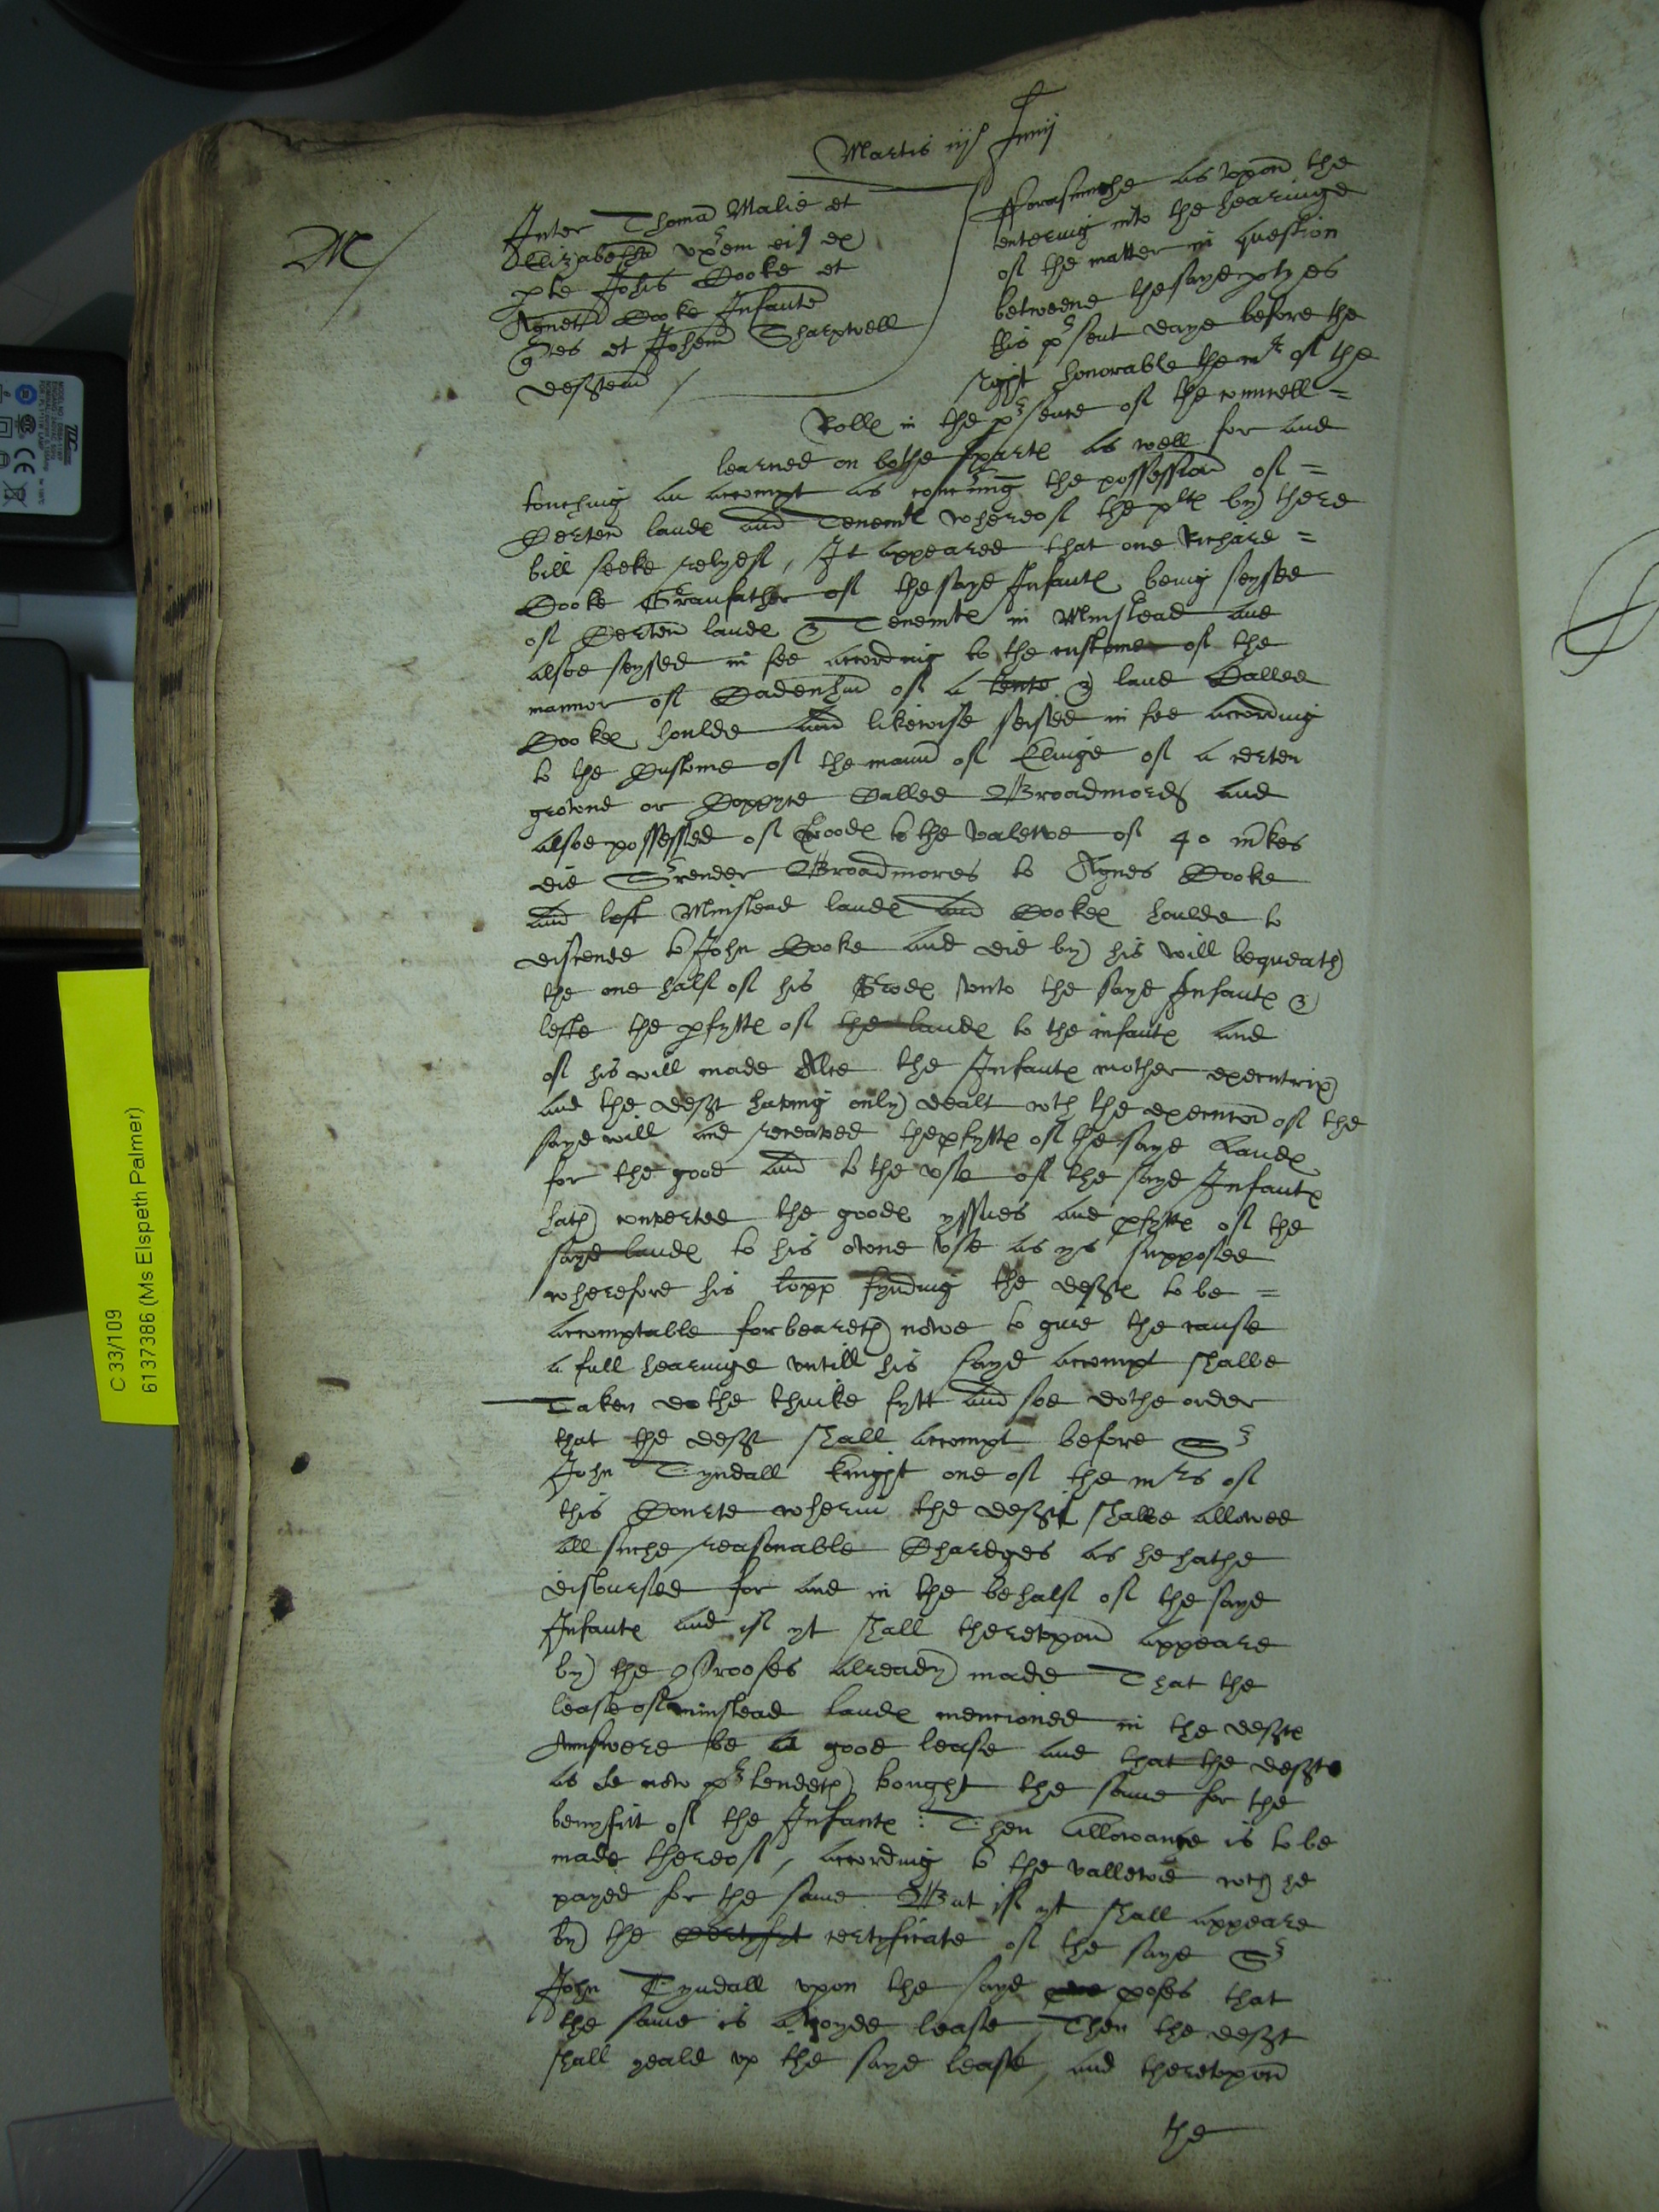 Martis iij Junij
M
Inter Thomā Malie et
Elizabethā vxem eiꝰ ex
pte Johis Cooke et
Agnett Cooke Infante
qtes et Johem Sharpwell
defftem
Forasmuche as vpon the
entering into the hearinge
of the matter in question
betweene the saye ptyes
this psent daye before the
right honorable the mr of the
Rolle in the psence of the councell =
learned on bothe parte as well for and
touching an accompt as concning the possession of =
Certen lande and Tenemte whereof the plte by there
bill seeke relyef, It appeared that one Richard =
Cooke Granfather of the saye Infante being seysed
of Certen lande & Tenemte in Minstead and
alsoe seysed in fee according to the custome of the
mannor of of a & land Called
Cookes houlde and likewise seised in fee according
to the Custome of the mannor of of a certen
grownd or Coppyce Called Broadmores and
alsoe possessed of Goode to the valewe of 40 mkes
did Srender Broadmores to Agnes Cooke
and left Minstead lande and Cookes houlde to
discende to John Cooke and did by his will bequeath
the one half of his Goode vnto the saye Infante &
lefte the pfytte of the lande to the infante and
of his will made Alce the Infante mother executrix
and the defft having only dealt wth the executor of the
saye will and receaved the pfytte of the saye Lande
for the good and to the vse of the saye Infante
hath converted the goode yssues and pfytte of the
saye lande to his owne vse as ys supposed
wherefore his lopp fynding the deffte to be =
accomptable forbeareth nowe to give the cause
a full hearinge vntill his saye accompt shalbe
Taken dothe thinke fytt and soe dothe order
that the defft shall accompt before Sr
John Tyndall knight one of the mrs of
this Courte wherin the defft shalbe allowed
all suche reasonable Chardges as he hathe
disbursed for and in the behalf of the saye
Infante and if yt shall therevpon appeare
by the Proofes already made That the
lease of minstead lande mencioned in the deffte
Aunswere be a good lease and that the deffte
as he now ptendeth bought the same for the
benyfitt of the Infante : Then allowance is to be
made thereof, according to the vallewe wch he
payed for the same But if yt shall appeare
by the Certyfyt certyficate of the saye Sr
John Tyndall vpon the saye pofes that
the same is a voyde lease Then the defft
shall yeald vp the saye lease, and therevpon
the
C 33/109
6137386 (Ms Elspeth Palmer)